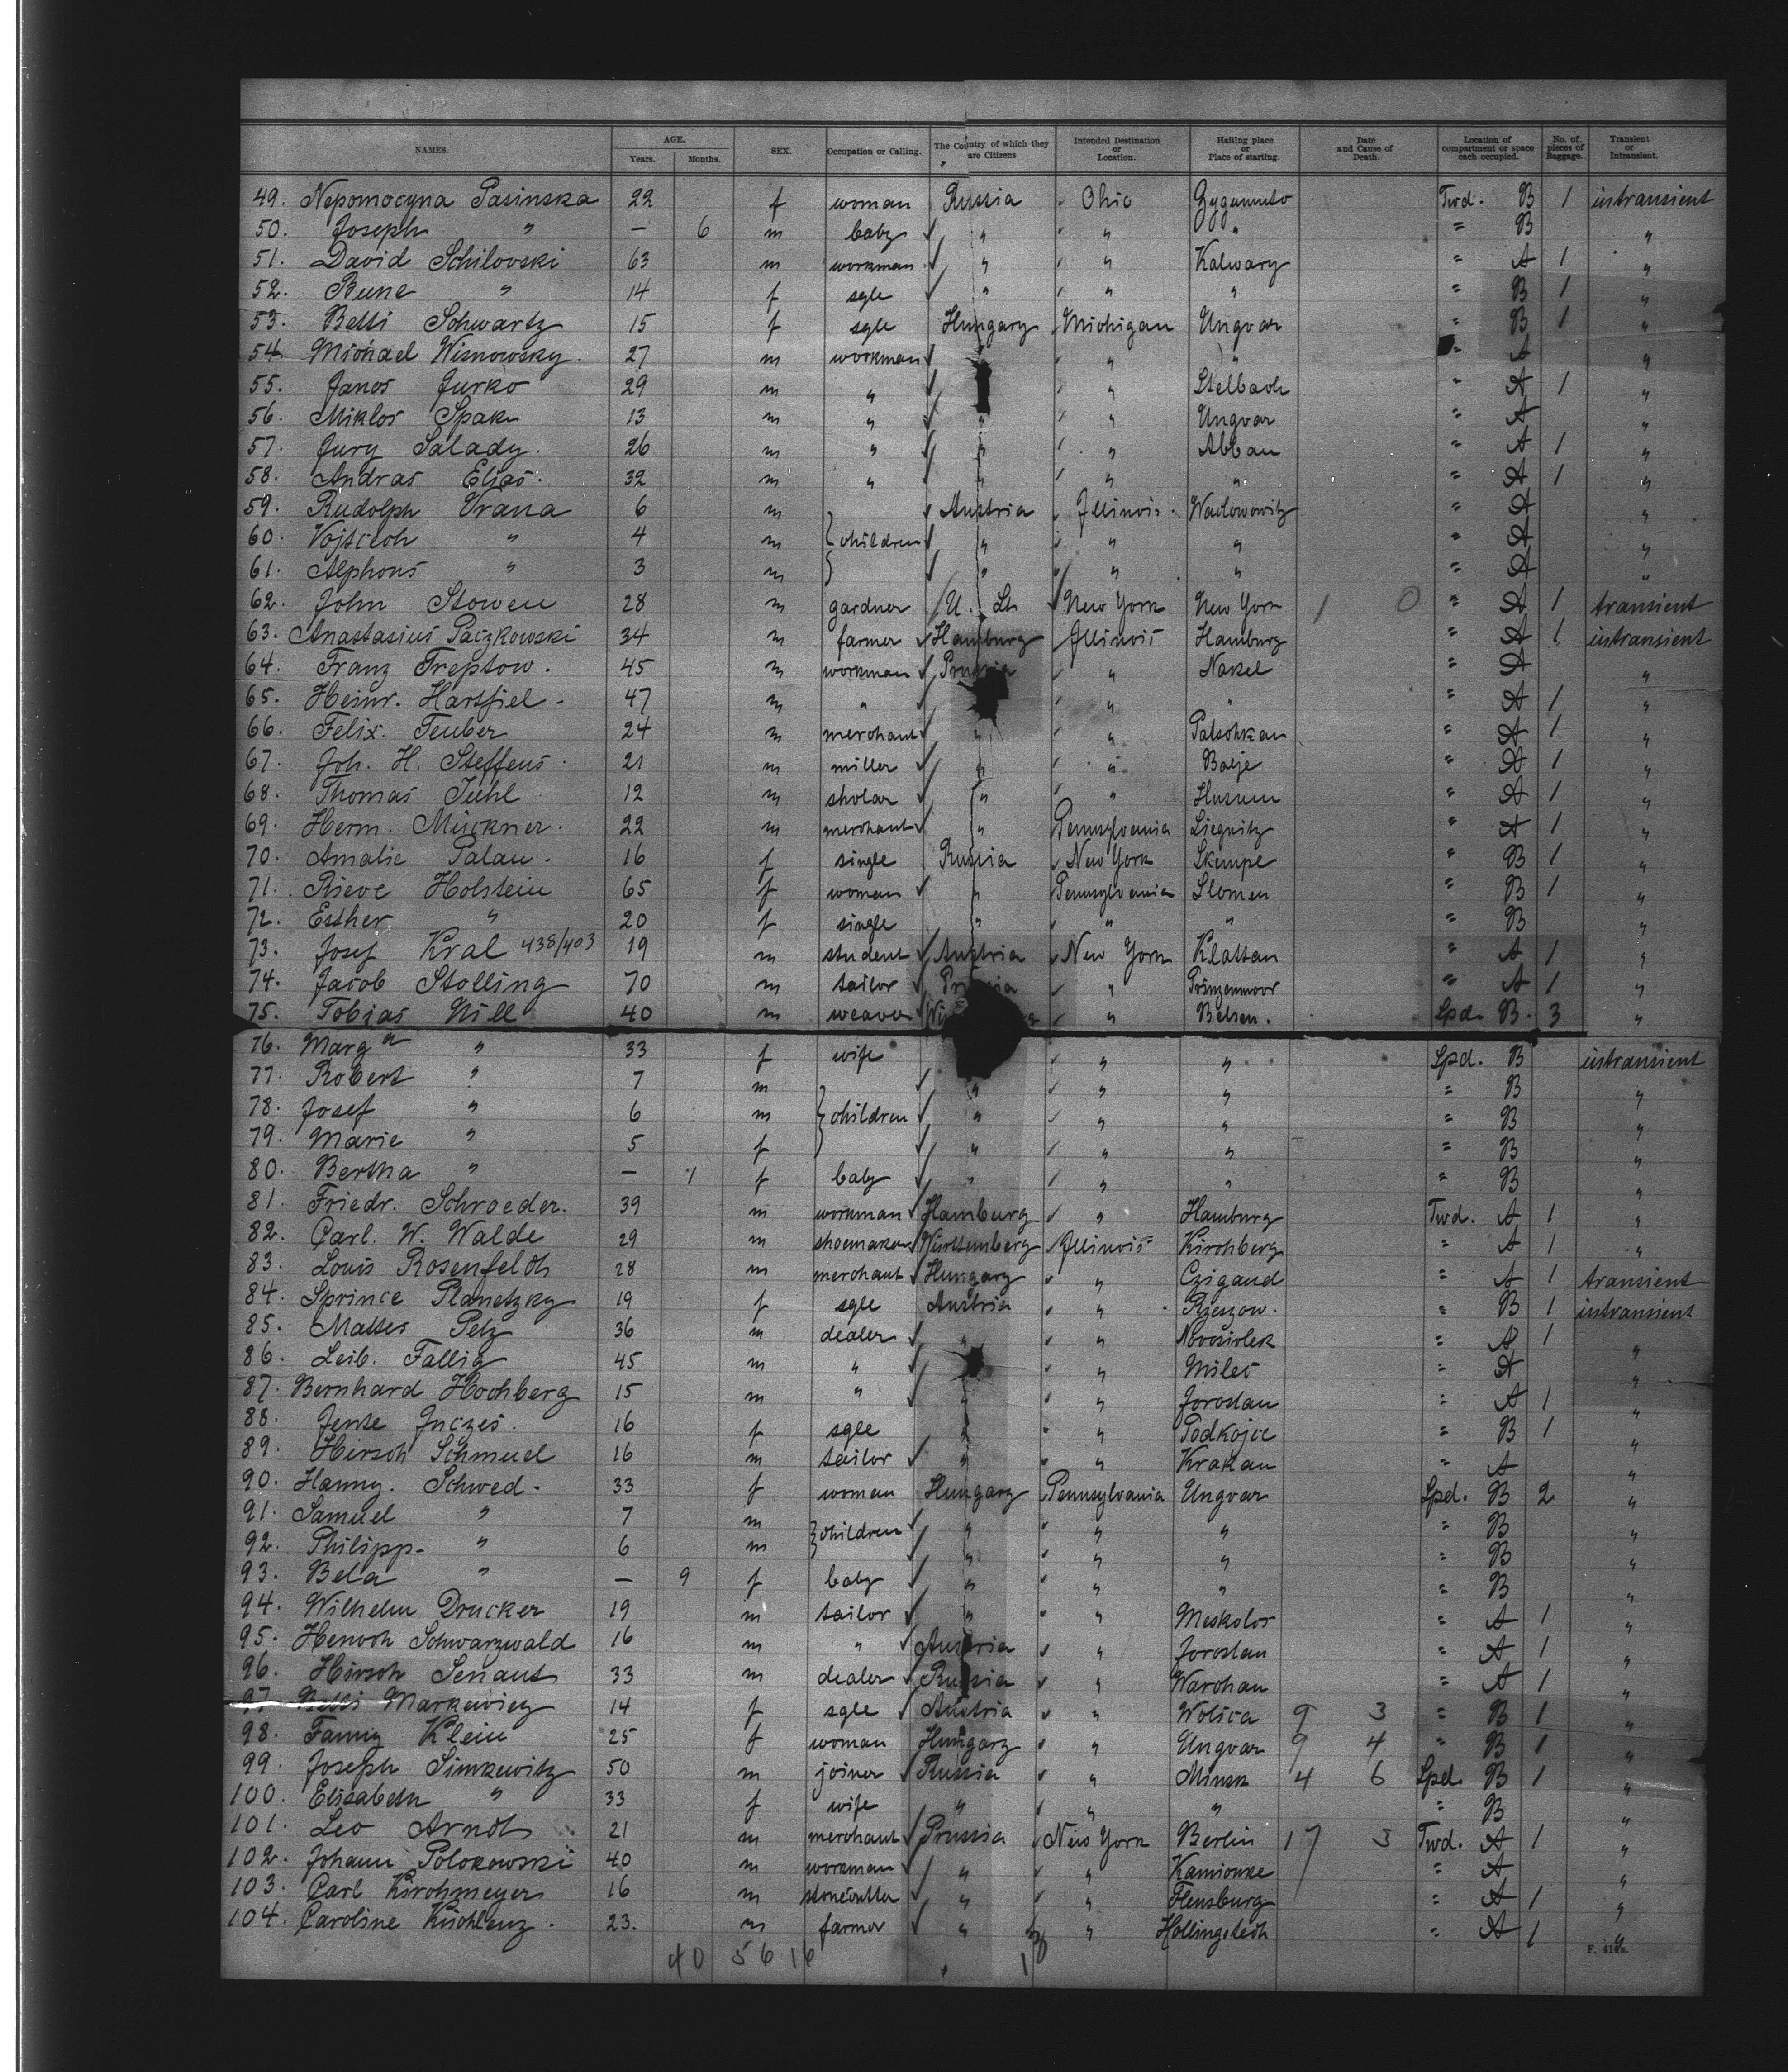 NAMES. AGE. Years. Months. SEX. Occupation or Calling. The Country of which they are Citizens Intended Destination or Location. Hailing place or Place of starting. Date and Cause of Death. Location of compartment or space each occupied. No. of pieces of Baggage. Transient or Intransient.
49. Nepomocyna Pasinska 22 f woman Russia Ohio Twd. B 1 intransient
50. Joseph " — 6 m baby " " " " B "
51. David Schilovski 63 m workman " " Kalwary " A 1 "
52. Rune " 14 f sgle " " " " B 1 "
53. Betti Schwartz 15 f sgle Hungary Michigan Ungvar " B 1 "
54. Michael Wisnowsky. 27 m workman " " " " A "
55. Janos Jurko 29 m " " " Stelbach " A 1 "
56. Miklos Spak 13 m " " " Ungvar " A "
57. Jury Salady. 26 m " " " Abbau " A 1 "
58. Andras Elias. 32 m " " " " " A 1 "
59. Rudolph Vrana 6 m Austria Illinois. Wadowowitz " A "
60. Vojtsech " 4 m children " " " " A "
61. Alphons " 3 m " " " " A "
62. John Stowen 28 m gardner U. St. New York New York 1 0 " A 1 transient
63. Anastasius Paczkowski 34 m farmer Hamburg Illinois Hamburg " A 1 intransient
64. Franz Treptow. 45 m workman Prussia " Nakel " A "
65. Heinr. Hartfiel. 47 m " " " " A 1 "
66. Felix. Teuber 24 m merchant " " Patschkau " A 1 "
67. Joh. H. Steffens. 21 m miller " " Balje " A 1 "
68. Thomas Juhl 12 m sholar " " Husum " A 1 "
69. Herm. Mückner. 22 m merchant " Pennsylvania Liegnitz " A 1 "
70. Amalie Palau. 16 f single Russia New York Skempe " B 1 "
71. Rieve Holstein 65 f woman " Pennsylvania Slomen " B 1 "
72. Esther " 20 f single " " " " B "
73. Josef Kral 438/403 19 m student Austria New York Klattau " A 1 "
74. Jacob Stolling 70 m tailor Prussia " Prinzenmoor " A 1 "
75. Tobias Nill 40 m weaver " Belsen. Spd. B. 3 "
76. Marg a " 33 f wife " " Spd. B intransient
77. Robert " 7 m " " " " B "
78. Josef " 6 m children " " " " B "
79. Marie " 5 f " " " " B "
80. Bertha " — 1 f baby " " " " B "
81. Friedr. Schroeder. 39 m workman Hamburg " Hamburg Twd. A 1 "
82. Carl. W. Walde 29 m shoemaker Württemberg Illinois Kirchberg " A 1 "
83. Louis Rosenfeldt 28 m merchant Hungary " Czigand " A 1 transient
84. Sprince Planetzky 19 f sgle Austria " Rzeszow. " B 1 intransient
85. Mattes Pelz 36 m dealer " " Novosirlek " A 1 "
86. Leib. Fallig 45 m " " " Milec " A "
87. Bernhard Hochberg 15 m " " " Joroslau " A 1 "
88. Jente Juczes. 16 f sgle " " Podkojce " B 1 "
89. Hirsch Schmuel 16 m tailor " " Krakau " A "
90. Hanny. Schwed. 33 f woman Hungary Pennsylvania Ungvar Spd. B 2 "
91. Samuel " 7 m children " " " " B "
92. Philipp. " 6 m " " " " B "
93. Bela " — 9 f baby " " " " B "
94. Wilhelm Drucker 19 m tailor " " Meskolos " A 1 "
95. Henoch Schwarzwald 16 m " Austria " Joroslau " A 1 "
96. Hirsch Senaut 33 m dealer Russia " Warchau " A 1 "
97 Betti Markewicz 14 f sgle Austria " Wolica 9 3 " B 1 "
98. Fanny Klein 25 f woman Hungary " Ungvar 9 4 " B 1 "
99. Joseph Simkewitz 50 m joiner Russia " Minsk 4 6 Spd. B 1 "
100. Elisabeth " 33 f wife " " " " B "
101. Leo Arndt 21 m merchant Prussia New York Berlin 17 3 Twd. A 1 "
102. Johann Polokowski 40 m workman " " Kamionke " A "
103. Carl Kirchmeyer 16 m stonecutter " " Flensburg " A 1 "
104. Caroline Kuohlenz. 23. m farmer " " Hollingstedt " A 1 "
40 56 16 18
F. 411a.